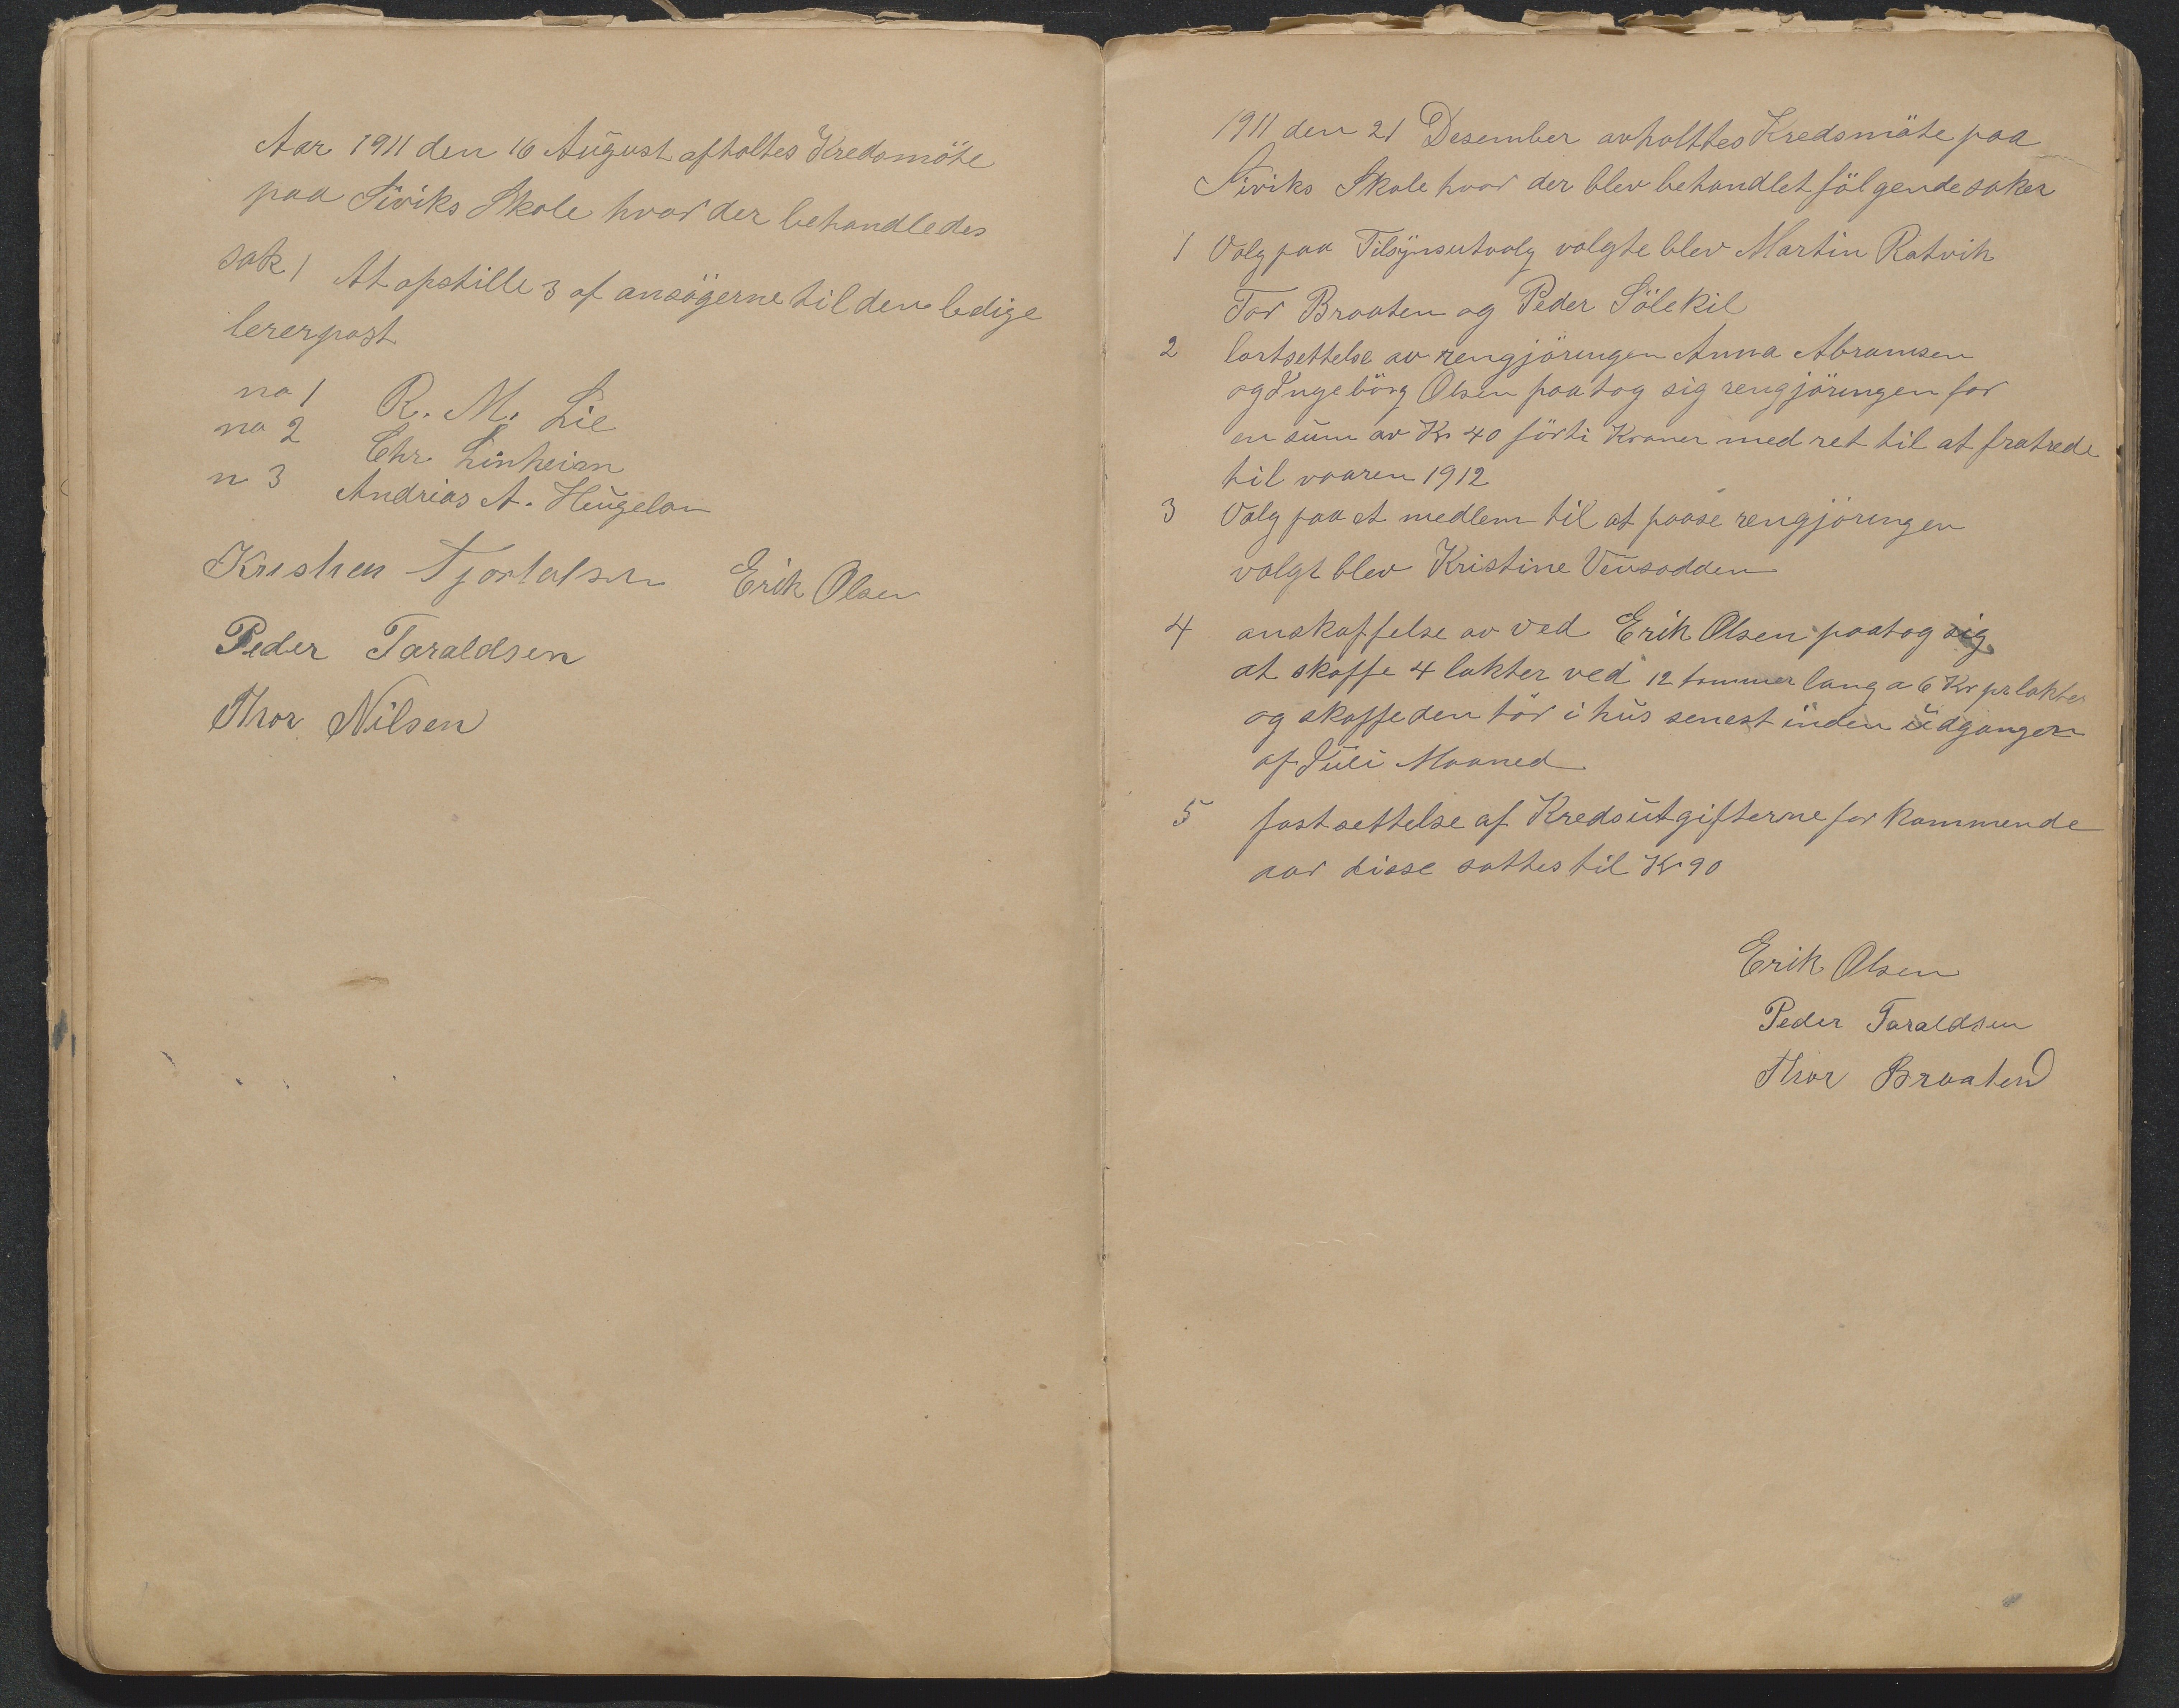 Aar 1911 den 16 August afholtes Kredsmöte
paa Siviks Skole hvor der behandledes
sak 1 At opstille 3 af ansögerne til den ledige
lererpost
no 1 R. M. Lie
no 2 Chr. Linheian
n 3 Andrias A. Heugelan
Kristen Tjostolsen Erik Olsen
Peder Taraldsen
Thor Nilsen
1911 den 21 Desember avholttes Kredsmöte paa
Siviks Skole hvor der blev behandlet fölgende saker
1 Valg paa Tilsynsutvalg valgte blev Martin Ratvik
Tor Braaten og Peder Sölekil
2 bortsettelse av rengjöringen Anna Abramsen
og Ingebörg Olsen paatog sig rengjöringen for
en sum av Kr 40 förti Kroner med ret til at fratrede
til vaaren 1912
3 Valg paa et medlem til at paase rengjöringen
valgt blev Kristine
4 anskaffelse av ved Erik Olsen paatog sig
at skaffe 4 lakter ved 12 tommer lang a 6 Kr pr lakter
og skaffe den tör i hus senest inden udgangen
af Juli Maaned
5 fastsettelse af Kredsutgifterne for kommende
aar disse sattes til Kr 90
Erik Olsen
Peder Taraldsen
Thor Braaten